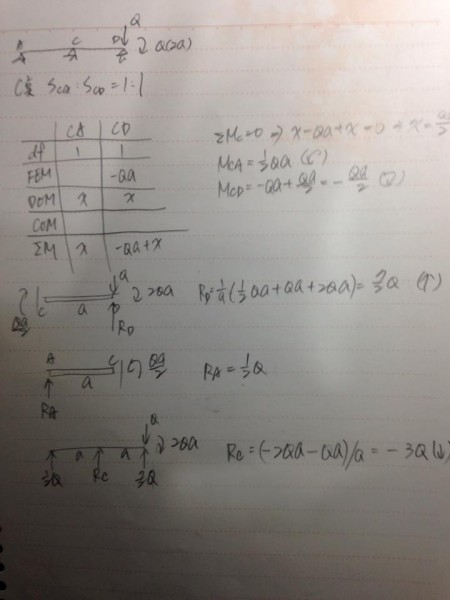 Q
A C D Q(2a)
C點 SCA:SCD=1:1
CA CD
df 1 1
FEM -Qa
DOM x x
COM
ΣM x -Qa+x
ΣMc=0 ⇒ x-Qa+x=0 ⇒ x=Qa/2
MCA=½Qa (↺)
MCD=-Qa+Qa/2=-Qa/2 (↻)
Q
Qa/2 C a 2Qa
RD
RD=1/a(½Qa+Qa+2Qa)=7/2Q (↑)
A C Qa/2
a
RA
RA=½Q
Q
a a 2Qa
½Q Rc 7/2Q
Rc=(-2Qa-Qa)/a=-3Q(↓)